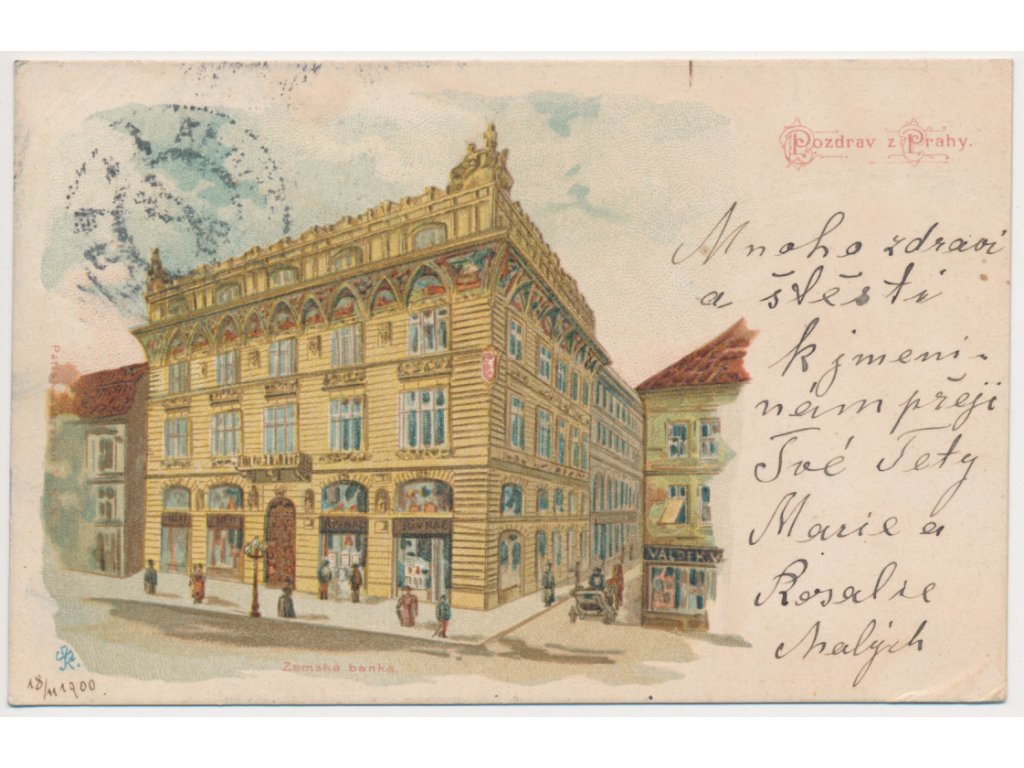 Pozdrav z Prahy.
Mnoho zdraví
a štěstí
k jmeni-
nám přeji
Tvé Tety
Marie a
Rosalie
Malých
ŘIVNÁČ
VALDEK
Zemská banka.
18/11 1900.